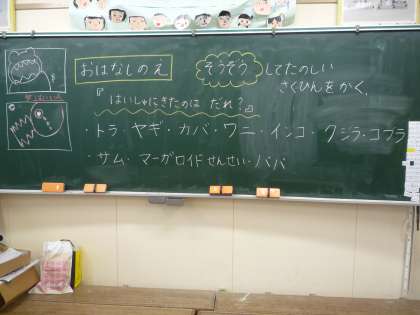 おはなしのえ
そうぞうしてたのしい
さくひんをかく。
『はいしゃにきたのは だれ？』
・トラ・ヤギ・カバ・ワニ・インコ・クジラ・コブラ
・サム・マーガロイドせんせい・パパ